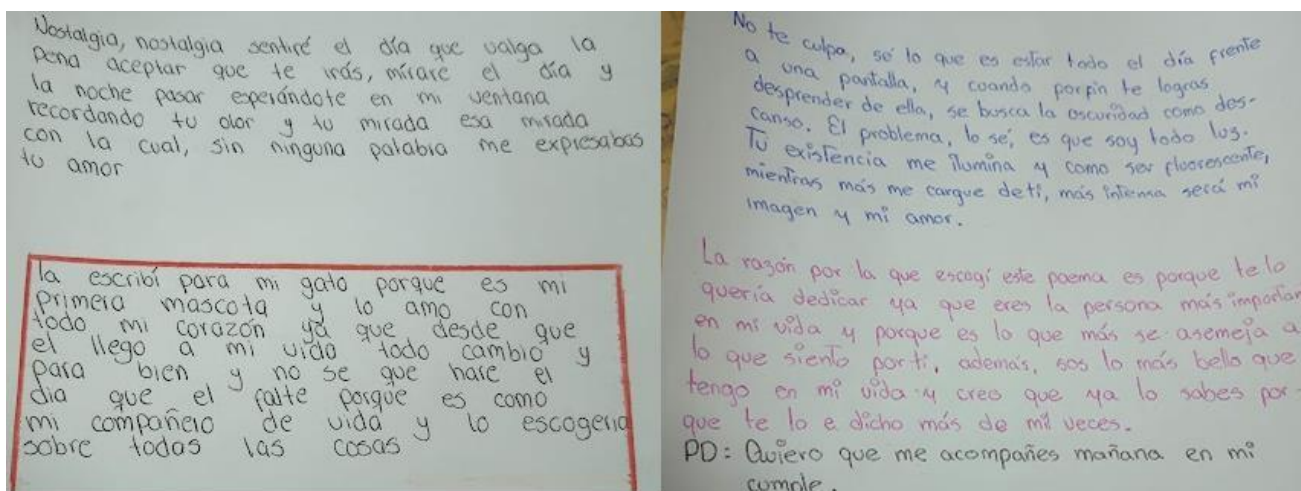 Nostalgia, nostalgia sentiré el día que valga la
pena aceptar que te irás, mirare el día y
la noche pasar esperándote en mi ventana
recordando tu olor y tu mirada esa mirada
con la cual, sin ninguna palabra me expresabas
tu amor
la escribí para mi gato porque es mi
primera mascota y lo amo con
todo mi corazón ya que desde que
el llego a mi vida todo cambio y
para bien y no se que hare el
dia que el falte porque es como
mi compañero de vida y lo escogeria
sobre todas las cosas
No te culpo, sé lo que es estar todo el día frente
a una pantalla, y cuando porfin te logras
desprender de ella, se busca la oscuridad como des-
canso. El problema, lo sé, es que soy todo luz.
Tú existencia me ilumina y como ser fluorescente,
mientras más me cargue de ti, más intensa será mi
imagen y mi amor.
La razón por la que escogí este poema es porque te lo
quería dedicar ya que eres la persona más importan
en mi vida y porque es lo que más se asemeja a
lo que siento por ti, además, sos lo más bello que
tengo en mi vida y creo que ya lo sabes por-
que te lo e dicho más de mil veces.
PD: Quiero que me acompañes mañana en mi
cumple.